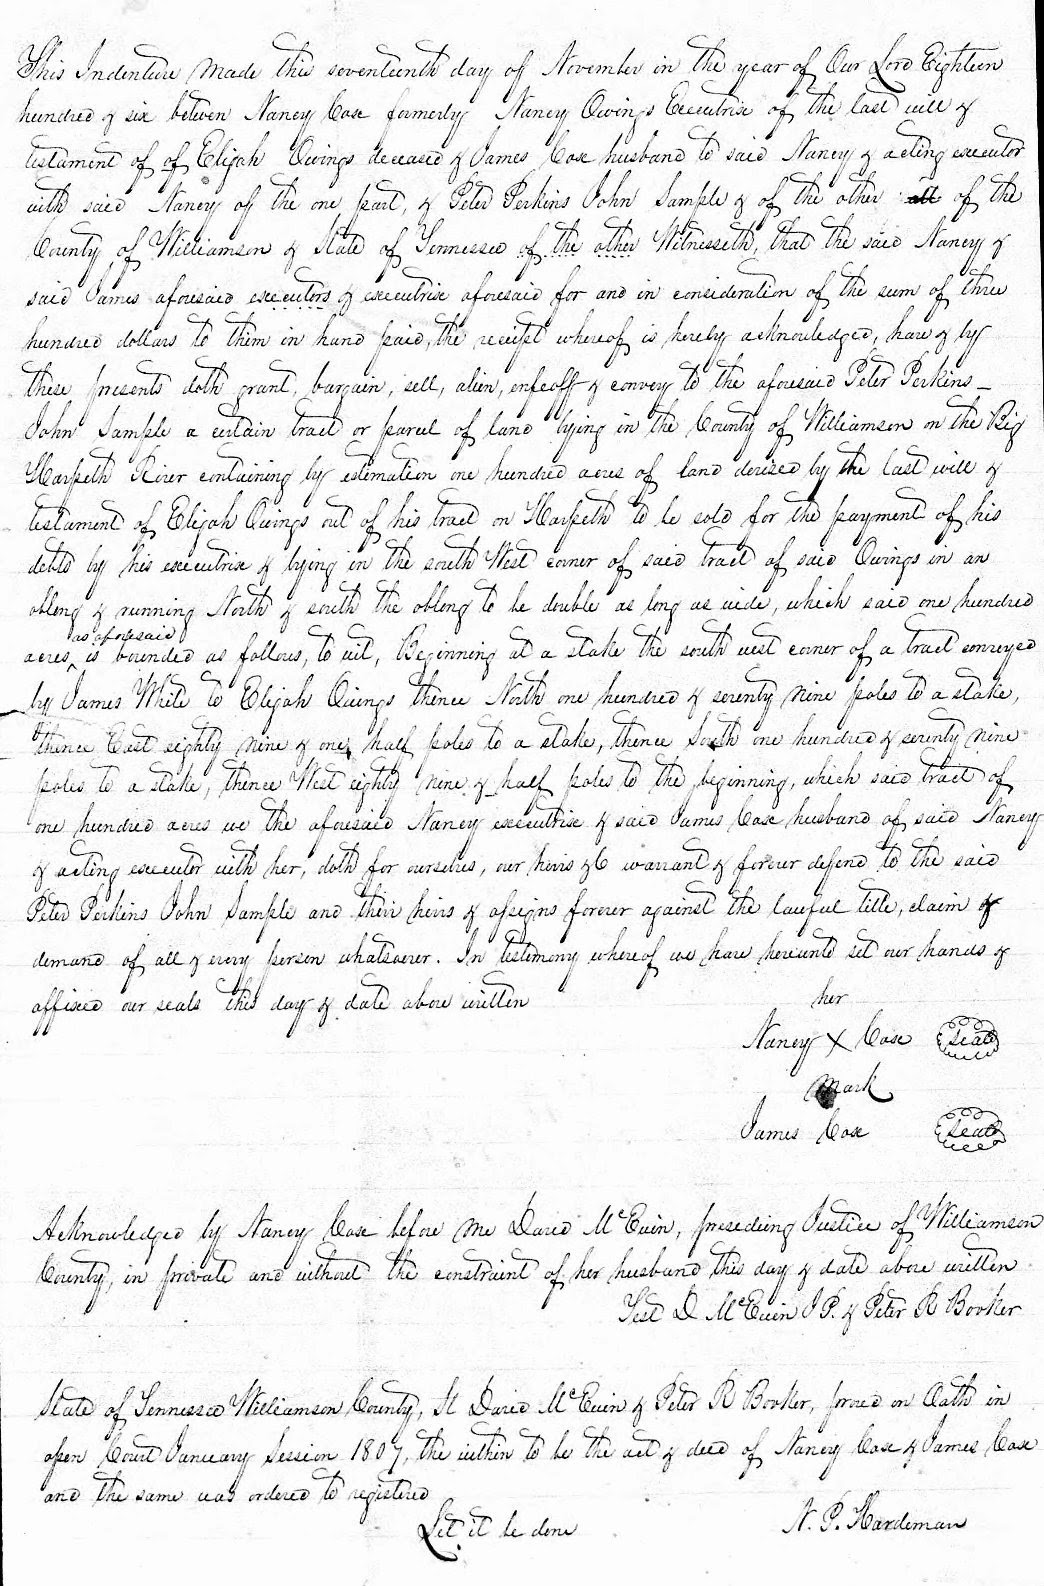 This Indenture made this seventeenth day of November in the year of Our Lord Eighteen
hundred & six between Nancy Case formerly Nancy Owings Executrix of the last will &
testament of of Elijah Owings deceased & James Case husband to said Nancy & acting executor
with said Nancy of the one part, & Peter Perkins John Sample & of the other all of the
County of Williamson & State of Tennessee of the other Witnesseth, that the said Nancy &
said James aforesaid executors & executrix aforesaid for and in consideration of the sum of three
hundred dollars to them in hand paid, the receipt whereof is hereby acknowledged, have & by
these presents doth grant, bargain, sell, alien, enfeoff & convey to the aforesaid Peter Perkins _
John Sample a certain tract or parcel of land lying in the County of Williamson on the Big
Harpeth River containing by estimation one hundred acres of land devised by the last will &
testament of Elijah Owings out of his tract on Harpeth to be sold for the payment of his
debts by his executrix & lying in the south West corner of said tract of said Owings in an
oblong & running North & south the oblong to be double as long as wide, which said one hundred
as aforesaid
acres ^ is bounded as follows, to wit, Beginning at a stake the south west corner of a tract conveyed
by James White to Elijah Owings thence North one hundred & seventy nine poles to a stake,
thence East eighty nine & one half poles to a stake, thence South one hundred & seventy nine
poles to a stake, thence West eighty nine & half poles to the beginning, which said tract of
one hundred acres we the aforesaid Nancy executrix & said James Case husband of said Nancy
& acting executor with her, doth for ourselves, our heirs &c warrant & forever defend to the said
Peter Perkins John Sample and their heirs & assigns forever against the lawful title, claim &
demand of all & every person whatsoever. In testimony whereof we have hereunto set our hands &
affixed our seals this day & date above written
her
Nancy X Case seal
mark
James Case seal
Acknowledged by Nancy Case before me David McEwin, presedieng Justice of Williamson
County, in private and without the constraint of her husband this day & date above written
Test D McEwin J P. & Peter R Booker
State of Tennessee Williamson County, St David McEwin & Peter R Booker, proved on Oath in
open Court January Session 1807, the within to be the act & deed of Nancy Case & James Case
and the same was ordered to registered
Let it be done N. P. Hardeman